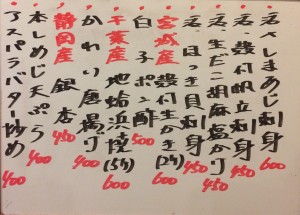 活〆しまあじ刺身 600
活・殻付帆立刺身 450
活生だこ胡麻塩 450
活ほっき貝刺 450
宮城産 殻付生かき(2ケ) 600
白子ポン酢 500
千葉産 地蛤浜焼(5ケ) 600
唐揚げ 400
静岡産 銀杏 450
本しめじ天ぷら 400
アスパラバター炒め 400